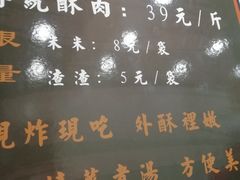 統酥肉:39元/斤
限量
米米:8元/袋
渣渣:5元/袋
現炸現吃 外酥裡嫩
煮湯 方便美